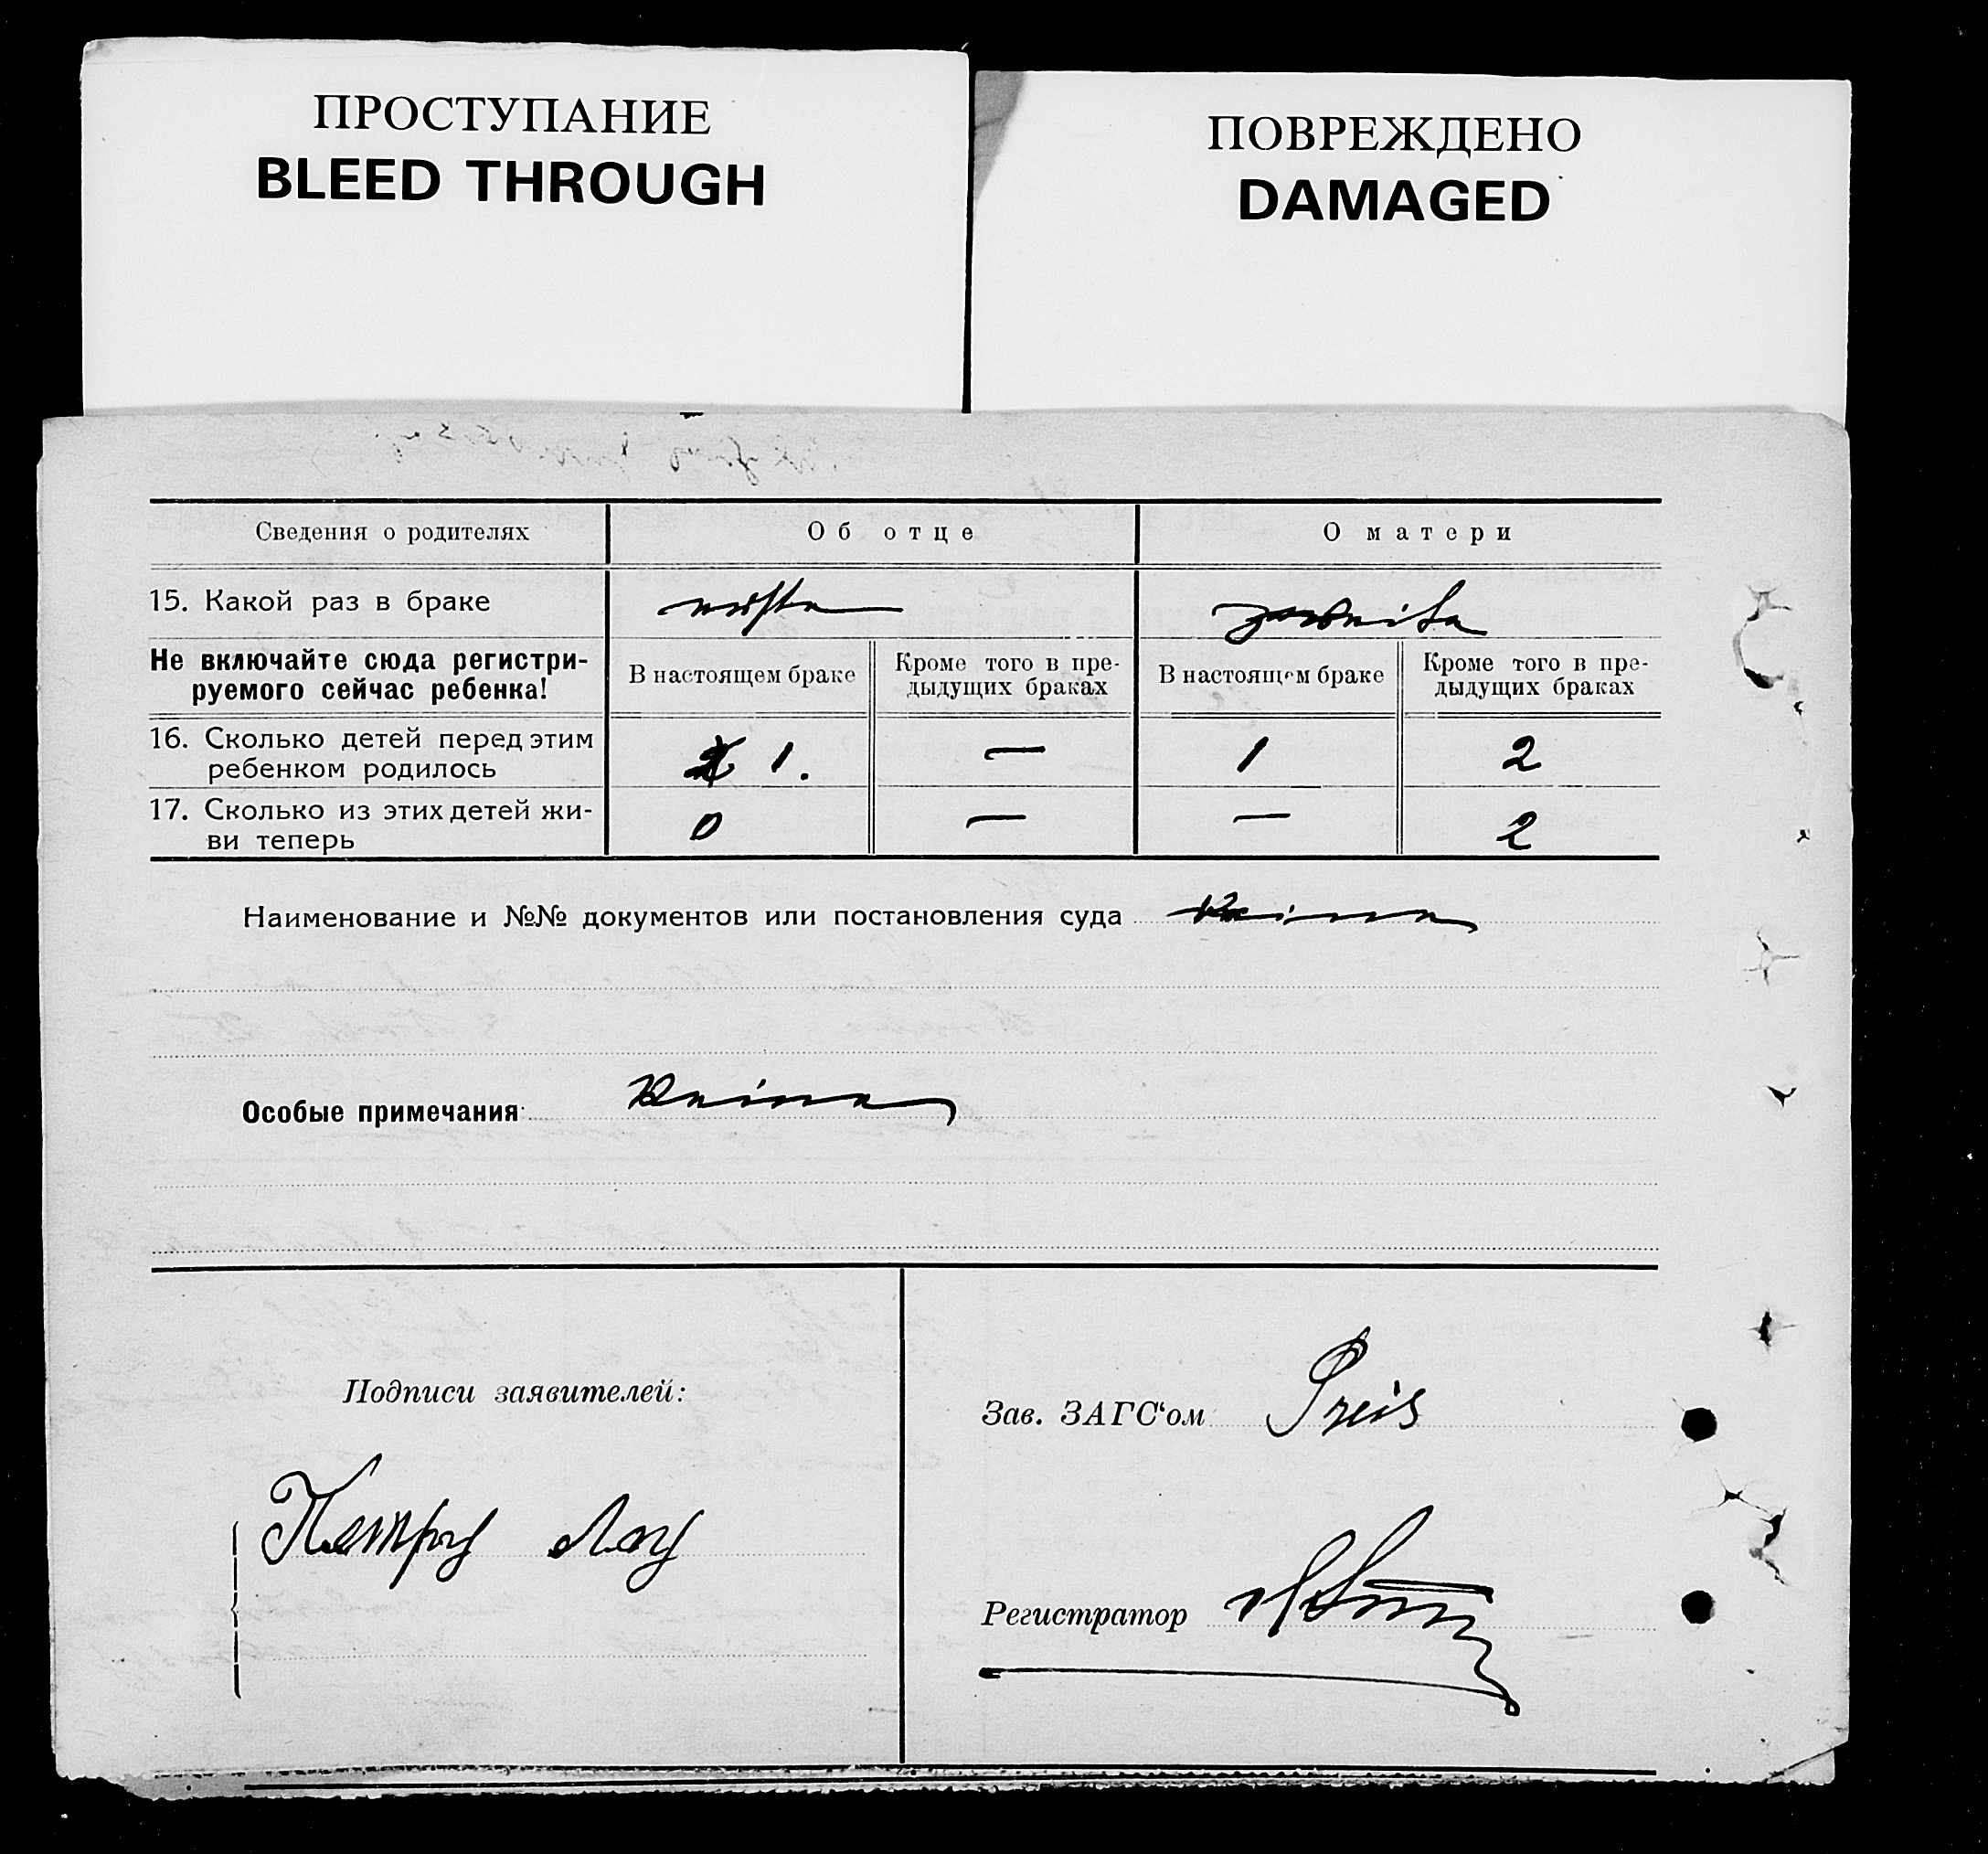 ПРОСТУПАНИЕ
BLEED THROUGH
ПОВРЕЖДЕНО
DAMAGED
Сведения о родителях Об отце О матери
15. Какой раз в браке
Не включайте сюда регистри-
руемого сейчас ребенка!
В настоящем браке
Кроме того в пре-
дыдущих браках
В настоящем браке
Кроме того в пре-
дыдущих браках
16. Сколько детей перед этим
ребенком родилось
1. — 1 2
17. Сколько из этих детей жи-
ви теперь
0 — — 2
Наименование и №№ документов или постановления суда
Особые примечания
Подписи заявителей:
Зав. ЗАГС‘ом
Регистратор